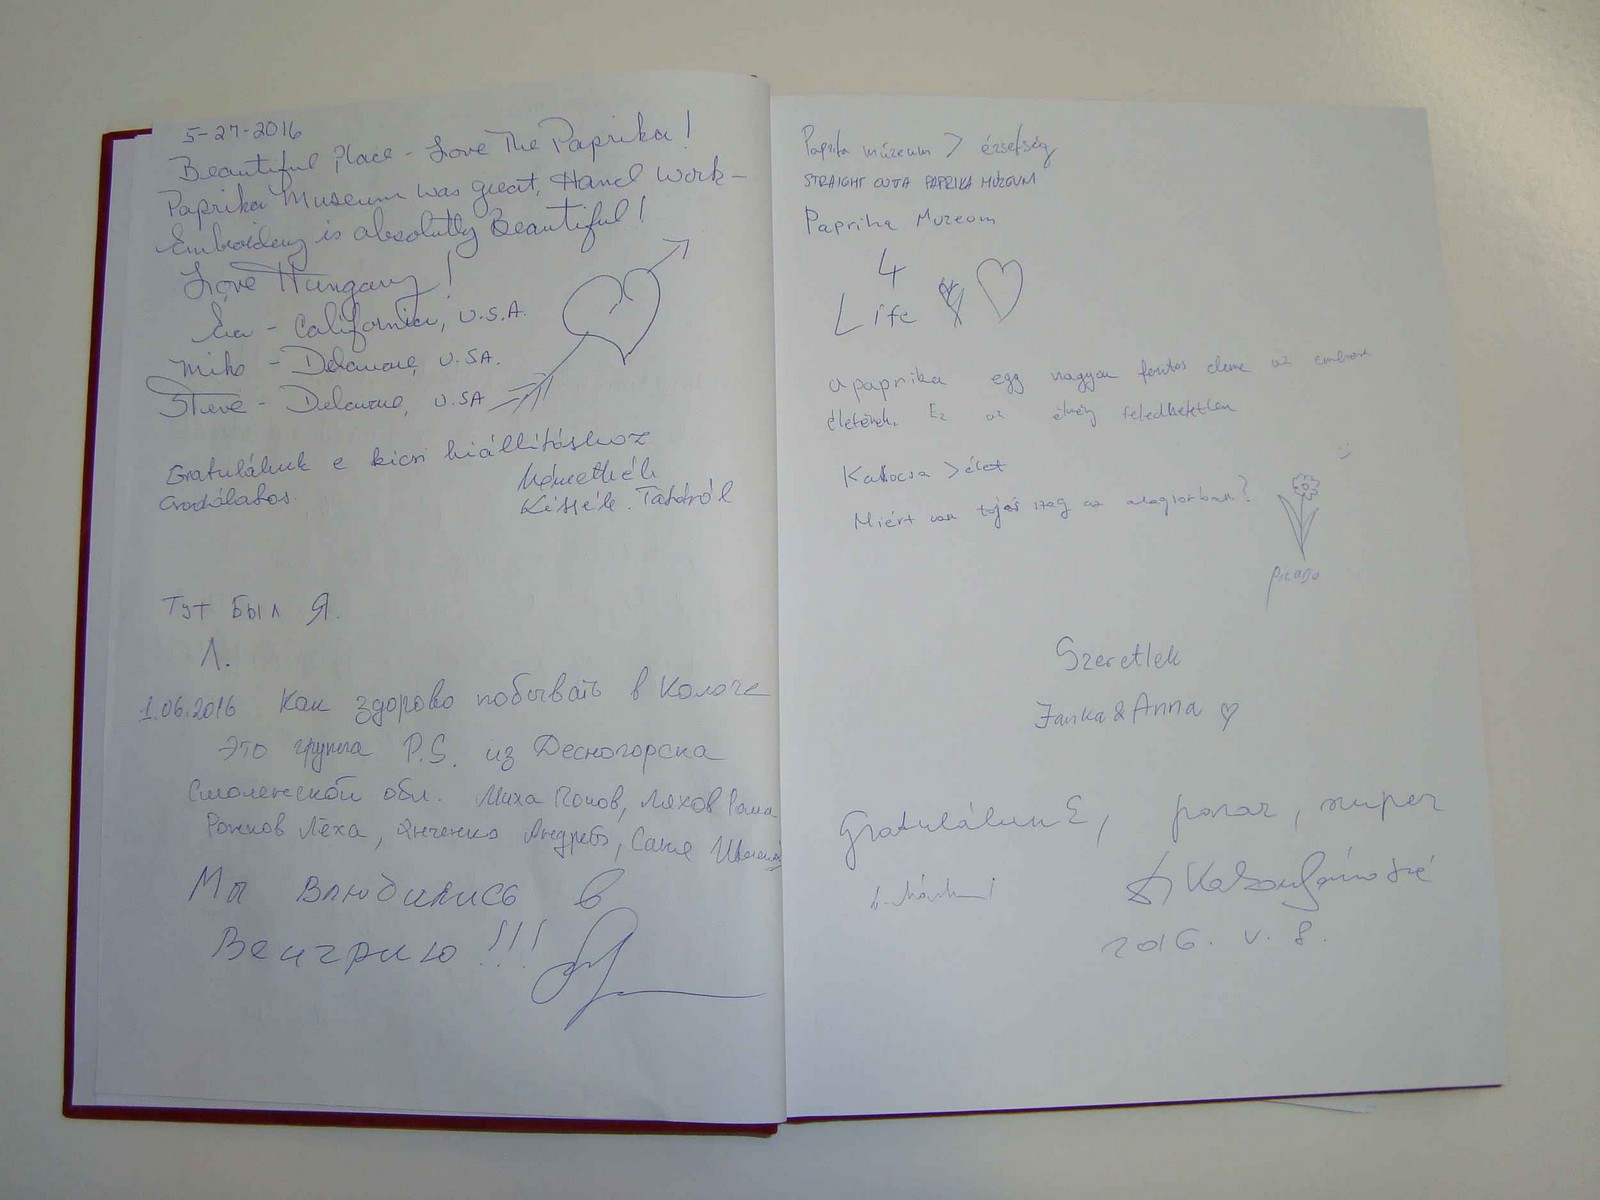 5-27-2016
Beautiful Place - Love The Paprika!
Paprika Museum was great, Hand work -
Embroidery is absolutly Beautiful!
Love Hungary!
- California, U.S.A.
- Delaware, U.SA.
Steve - Delaware, U.SA
Gratulálunk e kicsi kiállításhoz
Csodálatos.
Némethék
Tatáról
Тут был Я.
Л.
1.06.2016 Как здорово побывать в Калоче
Это группа P.S. из Десногорска
Смоленской обл. Миха Попов, Ляхов Рома
Лёха, Янченко Андрей, Саня
Мы влюбились в
Венгрию!!!
Paprika múzeum > érsekség
STRAIGHT OUTA PAPRIKA MÚZEUM
Paprika Muzeum
4
Life
a paprika egy nagyon fontos eleme az
életének. Ez az élmény feledhetetlen
Kalocsa > élet
Miért van tojás szag az ?
:)
Szeretlek
Janka & Anna
Gratulálunk, szuper
2016. V. 8.